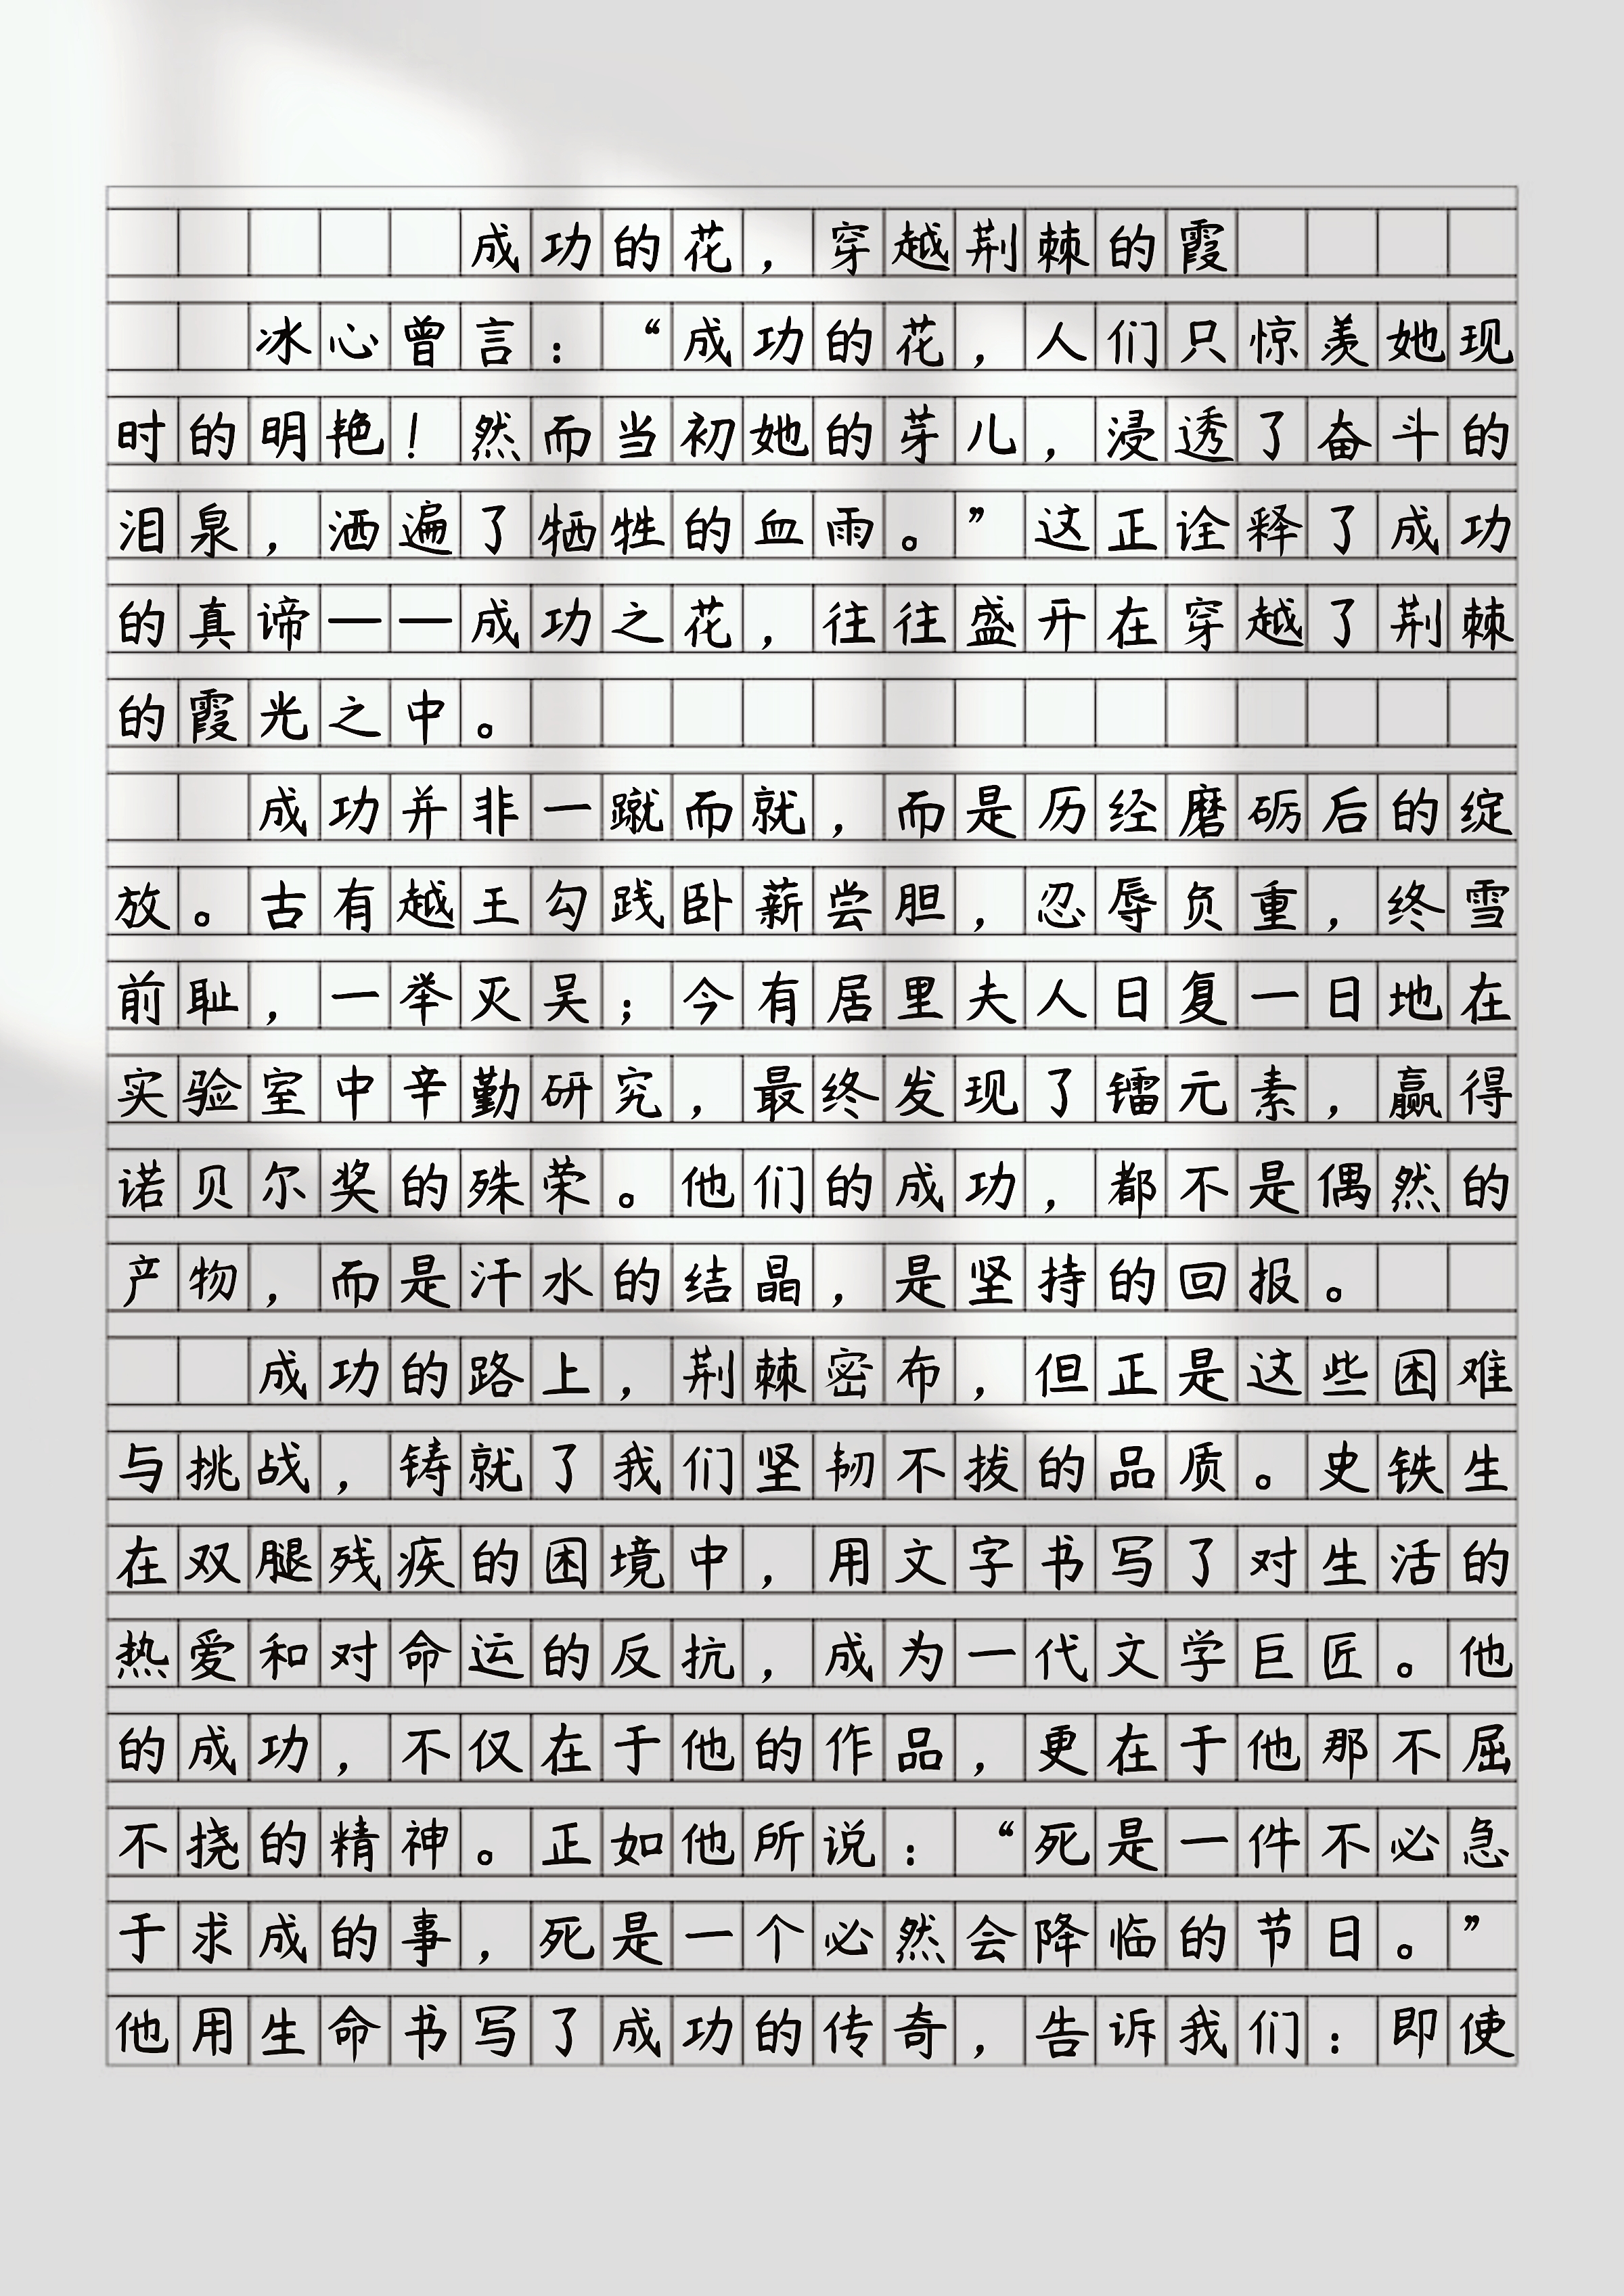 成功的花，穿越荆棘的霞
冰心曾言：“成功的花，人们只惊羡她现
时的明艳！然而当初她的芽儿，浸透了奋斗的
泪泉，洒遍了牺牲的血雨。”这正诠释了成功
的真谛——成功之花，往往盛开在穿越了荆棘
的霞光之中。
成功并非一蹴而就，而是历经磨砺后的绽
放。古有越王勾践卧薪尝胆，忍辱负重，终雪
前耻，一举灭吴；今有居里夫人日复一日地在
实验室中辛勤研究，最终发现了镭元素，赢得
诺贝尔奖的殊荣。他们的成功，都不是偶然的
产物，而是汗水的结晶，是坚持的回报。
成功的路上，荆棘密布，但正是这些困难
与挑战，铸就了我们坚韧不拔的品质。史铁生
在双腿残疾的困境中，用文字书写了对生活的
热爱和对命运的反抗，成为一代文学巨匠。他
的成功，不仅在于他的作品，更在于他那不屈
不挠的精神。正如他所说：“死是一件不必急
于求成的事，死是一个必然会降临的节日。”
他用生命书写了成功的传奇，告诉我们：即使